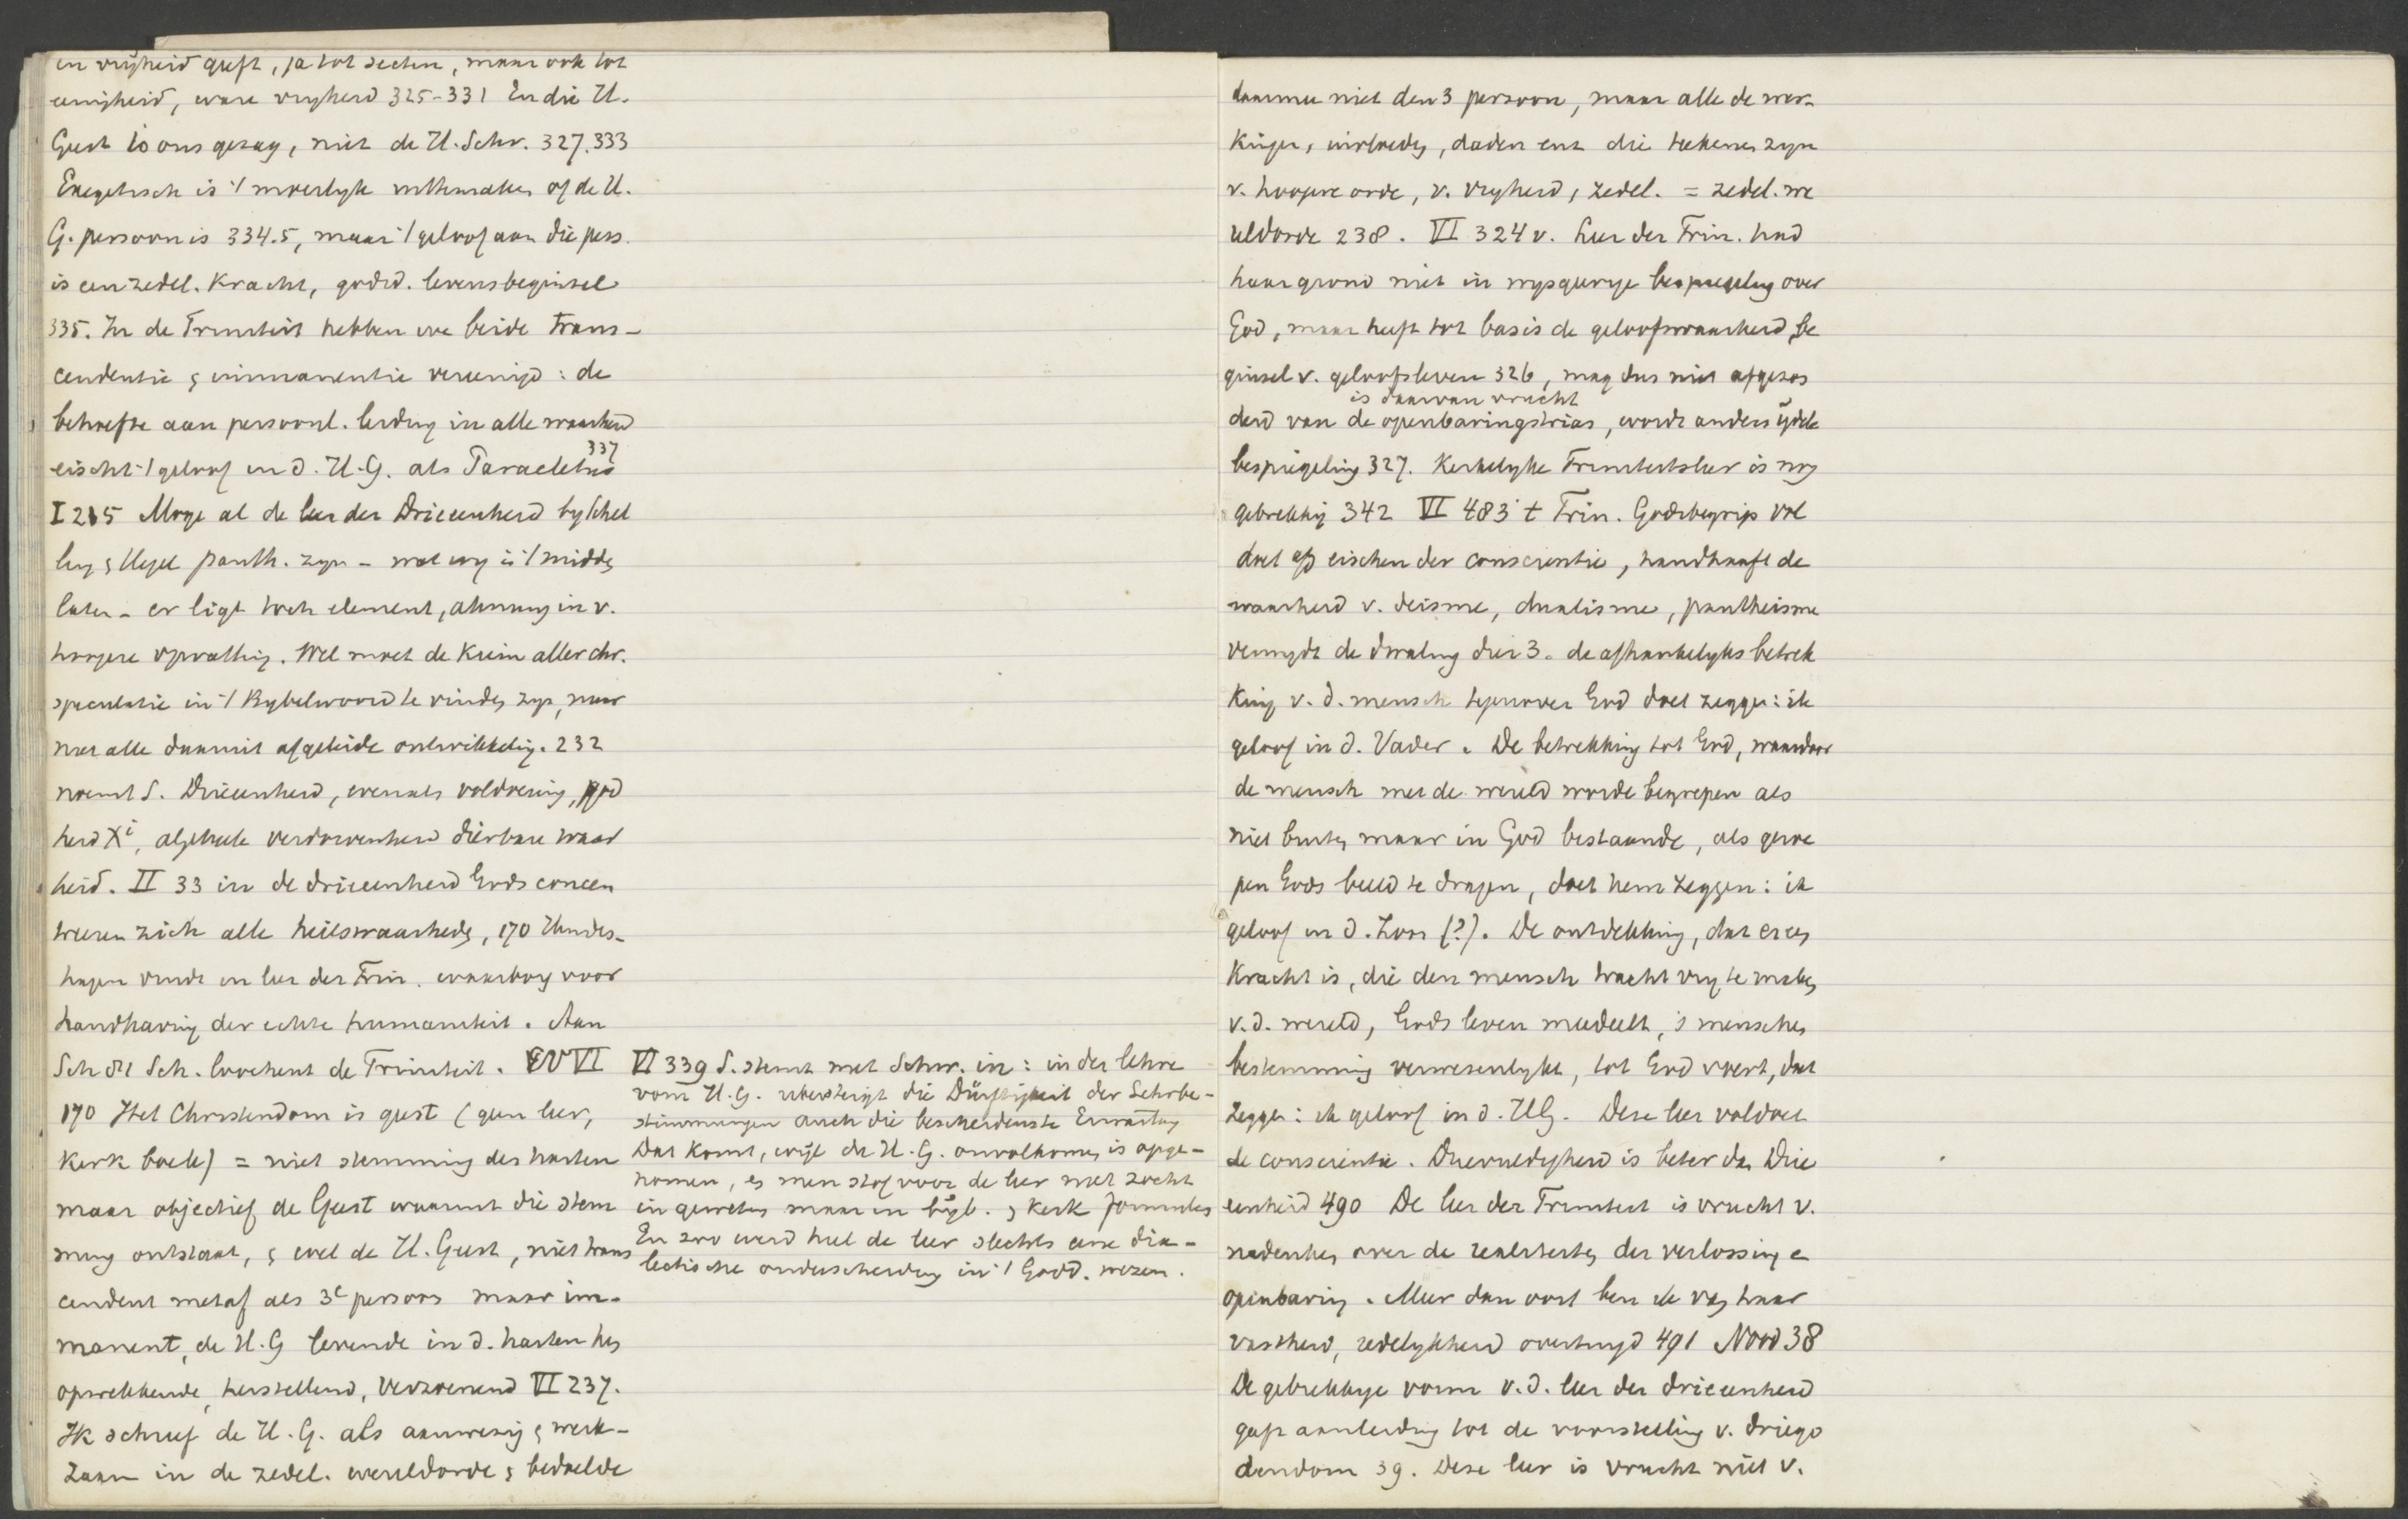 en vrijheid geeft, ja tot secten, maar ook tot
eenigheid, ware vryheid 325-331 En die H.
Geest is ons gezag, niet de H. Schr. 327.333
Exegetisch is 't moeilyk uittemaken of de H.
G. persoon is 334.5, maar 't geloof aan die pers.
is een zedel. kracht, godsd. levensbeginsel
335. In de Triniteit hebben we beide trans-
cendentie & immanentie vereenigd: de
behoefte aan persoonl. leiding in alle waarheid
eischt 't geloof in d. H.G. als Paracletus 337
I 215 Moge al de leer der Drieeenheid by Schel
ling & Hegel panth. zyn - wat my is 't midde
laten - er ligt toch element, ahnung in v.
hoogere opvatting. Wel moet de kiem aller chr.
speculatie in 't Bybelwoord te vinden zyn, maar
niet alle daaruit afgeleide ontwikkeling. 232
noemt S. Drieeenheid, evenals voldoening, god
heid Xi, algeheele verdorvenheid dierbare waar
heid. II 33 in de drieeenheid Gods concen
treeren zich alle heilswaarheden, 170 Hundes-
hagen vindt in leer der Trin. waarborg voor
handhaving der echte humaniteit. Aan
Sch dit Sch. loochent de Triniteit. VI
170 Het Christendom is geest (geen leer,
kerk boek) = niet stemming des harten
maar objectief de Geest waaruit die stem
ming ontstaat, & wel de H. Geest, niet trans
cendent metaf als 3e persoon maar im-
manent, de H.G levende in d. harten hen
opwekkende, herstellend, verzoenend VI 237.
Ik schreef de H.G. als aanwezig & werk-
zaam in de zedel. wereldorde & bedoelde
VI 339 S. stemt met Schw. in: in der lehre
vom H.G. übersteigt die Dürftigkeit der Lehrbe-
stimmungen auch die bescheidenste Erwartung
Dat komt, wijl de H.G. onvolkomen is opge-
nomen, en men stof voor de leer niet zocht
in geweten maar in bijb. & kerk formules
En zoo werd heel de leer slechts eene dia-
lectische onderscheiding in 't Godd. wezen.
daarmee niet den 3 persoon, maar alle de wer-
kingen, invloeden, daden enz die teekenen zyn
v. hoogere orde, v. vryheid, zedel. = zedel. we
reldorde 238. VI 324 v. Leer der Trin. had
haar grond niet in wysgeerige bespiegeling over
God, maar heeft tot basis de geloofswaarheid, be
ginsel v. geloofsleven 326, mag dus niet afgeson
is daarvan vrucht
derd van de openbaringstrias, wordt anders ijdele
bespiegeling 327. Kerkelyke Triniteitsleer is nog
gebrekkig 342 VI 483 't Trin. Godsbegrip vol
doet aan eischen der conscientie, handhaaft de
waarheid v. deisme, dualisme, pantheisme
vermydt de dwaling dier 3. de afhankelyks betrek
king v. d. mensch tegenover God doet zeggen: ik
geloof in d. Vader. De betrekking tot God, waardoor
de mensch met de wereld wordt begrepen als
niet buiten maar in God bestaande, als geroe
pen Gods beeld te dragen, doet hem zeggen: ik
geloof in d. Zoon (?). De ontdekking, dat er een
kracht is, die den mensch tracht vry te maken
v. d. wereld, Gods leven meedeelt, 's menschen
bestemming verwezenlykt, tot God voert, doet
zeggen: ik geloof in d. HG. Deze leer voldoet
de conscientie. Drievuldigheid is beter dan Drie
eenheid 490 De leer der Triniteit is vrucht v.
nadenken over de realiteiten der verlossing en
openbaring. Meer dan ooit ben ik van haar
vastheid, redelykheid overtuigd 491 Nood 38
De gebrekkige vorm v. d. leer der drieeenheid
gaf aanleiding tot de voorstelling v. driego
dendom 39. Deze leer is vrucht niet v.